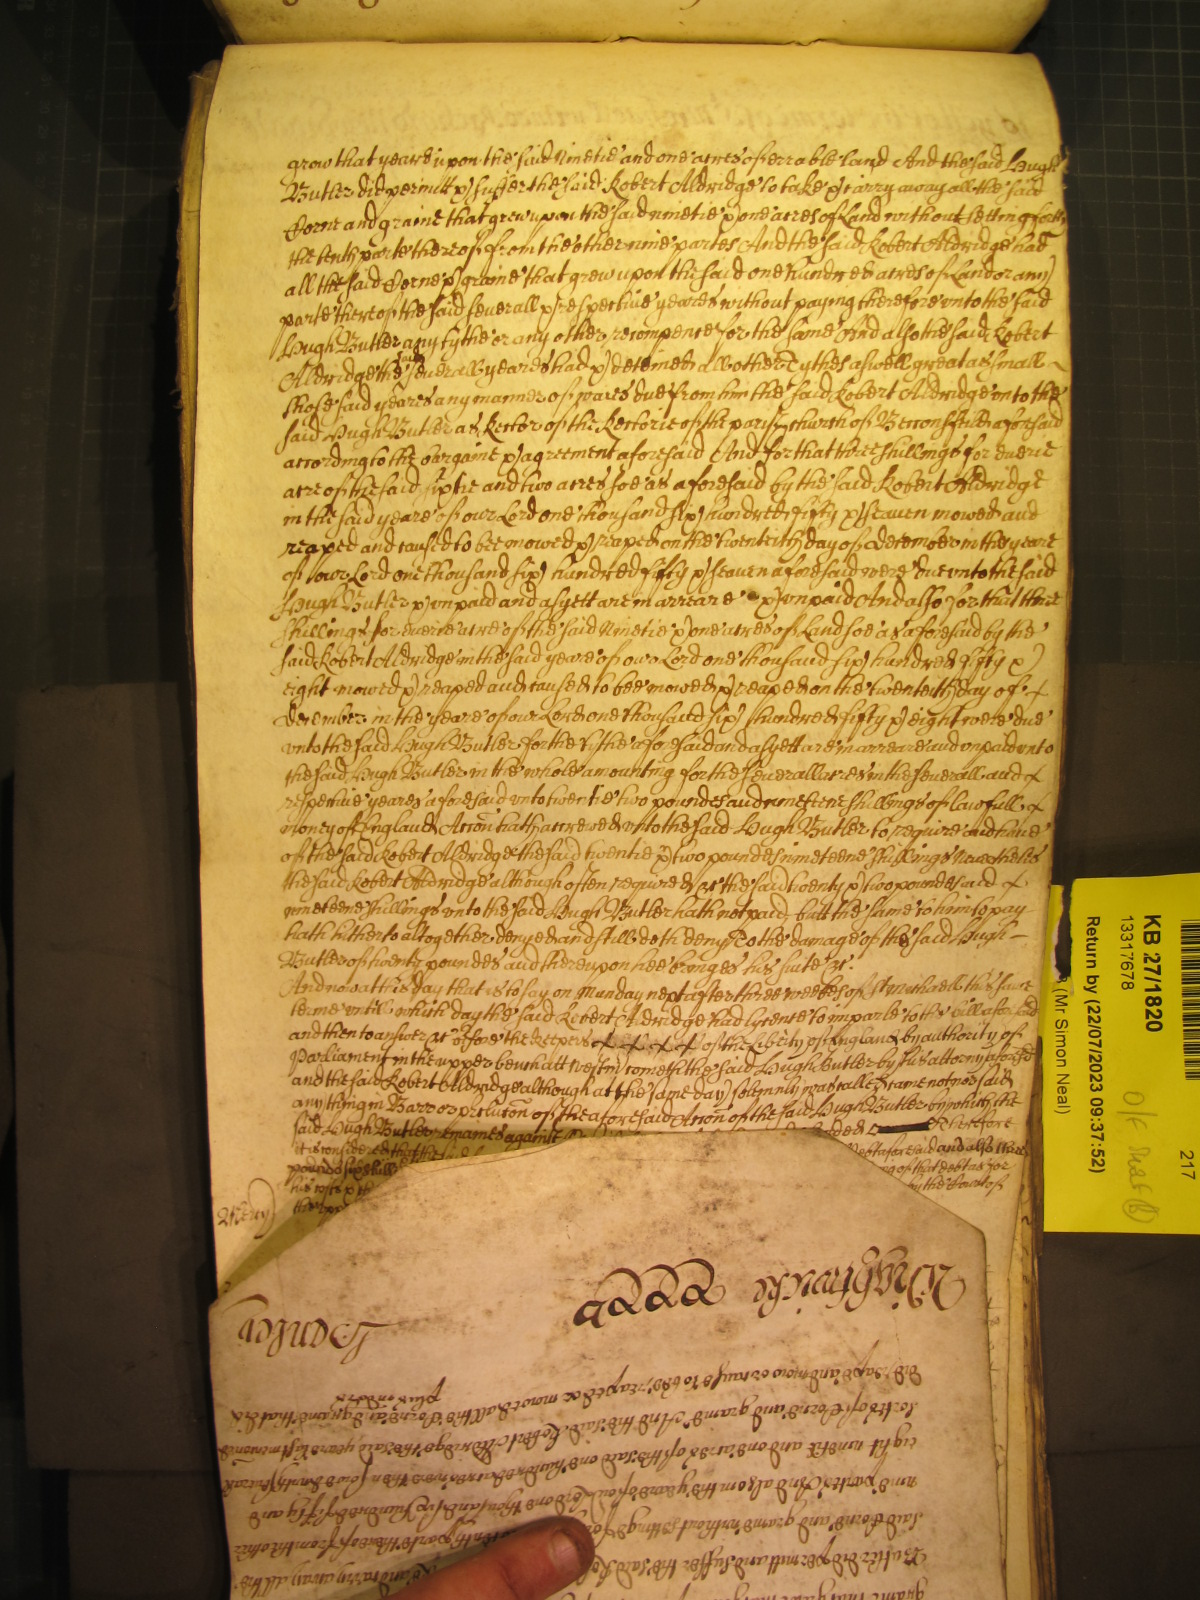 grow that yeare upon the said Ninetie and one acres of errable land And the said Hugh
Butler did permitt & suffer the said Robert Aldridge to take & carry away all the said
Corne and graine that grew upon the said ninetie & one acres of Land without setting forth
the tenth parte thereof from the other nine partes And the said Robert Aldridge had
all the said Corne & graine that grew upon the said one hundred acres of Land or any
parte thereof the said severall & respective yeares without paying therefore unto the said
Hugh Butler any tythe or any other recompence for the same And also the said Robert
Aldridge the said severall yeares had & deteined all other Tythes aswell great as small
those said yeares any manner of waies due from him the said Robert Aldridge unto the
said Hugh Butler as Rector of the Rectorie of the parish church of Beconsfeild aforesaid
according to the bargaine & agreement aforesaid And for that three shillings for everie
acre of the said sixtie and two acres soe as aforesaid by the said Robert Aldridge
in the said yeare of our Lord one thousand six hundred fifty & seaven mowed and
reaped and caused to bee mowed & reaped on the twentith day of December in the yeare
of our Lord one thousand six hundred fifty & seaven aforesaid were due unto the said
Hugh Butler & unpaid and as yett are in arreare & unpaid And also for that three
shillings for everie acre of the said Ninetie & one acres of Land soe as aforesaid by the
said Robert Aldridge in the said yeare of our Lord one thousand six hundred fifty &
eight mowed & reaped and caused to bee mowed & reaped on the twentith day of
December in the yeare of our Lord one thousand six hundred fifty & eight were due
unto the said Hugh Butler for the tithe aforesaid and as yett are in arreare and unpaid unto
the said Hugh Butler in the whole amounting for the severall acres in the severall and
respective yeares aforesaid unto twentie two poundes and nineteene shillings of lawfull
money of England Accon hath accrewed unto the said Hugh Butler to require and have
of the said Robert Aldridge the said twentie & two poundes nineteene shillings Neverthelesse
the said Robert Aldridge although often required &c the said twenty & two poundes and
nineteene shillings unto the said Hugh Butler hath not paid, butt the same to him to pay
hath hitherto altogether denyed and still doth deny To the damage of the said Hugh
Butler of twenty poundes and thereupon hee bringes his suite &c.
And now at this day that is to say on Munday next after three weekes of St Michaell this same
terme until which day the said Robert Aldridge had lycence to imparle to the bill aforesaid
and then to answer &c before the keepers of the Liberty of England by authority of
Parliament in the upper bench att Westm cometh the said Hugh Butler by his attorny aforesd
and the said Robert Aldridge although at the same day solemnly was called came not nor said
any thing in Barr or preclucon of the aforesaid Accon of the said Hugh Butler by which the
said Hugh Butler remaines against Therefore
it is considered that the debt aforesaid and also
pounds six of that debt as for
his by the Court of
Mercy
Michaelmas
Hanley
did reape and mow or cause to bee reaped or mowed all the Corne and graine that did
sortes of Corne and graine And the said Robert Aldridge the said yeare last mentioned
eight ninetie and one acres of the said one hundred acres were then sowed with severall
nine partes And also in the yeare of our Lord one thousand six hundred fifty and
said Corne and graine without setting forth the tenth parte thereof from the other
Butler did permitt and suffer the said and carry away all the
KB 27/1820
13317678
Return by (22/07/2023 09:37:52)
(Mr Simon Neal)
217